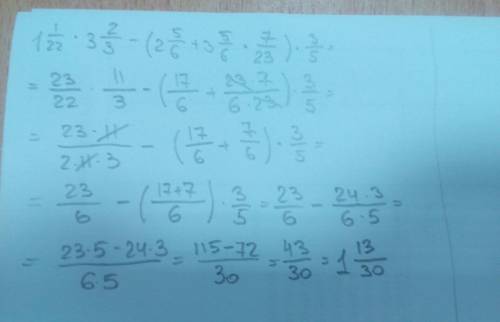 1 1/22 · 3 2/3 - (2 5/6 + 3 5/6 · 7/23) · 3/5 =
= 23/22 · 11/3 - (17/6 + 23·7/6·23) · 3/5 =
= 23·11/2·11·3 - (17/6 + 7/6) · 3/5 =
= 23/6 - (17+7/6) · 3/5 = 23/6 - 24·3/6·5 =
= 23·5-24·3/6·5 = 115-72/30 = 43/30 = 1 13/30